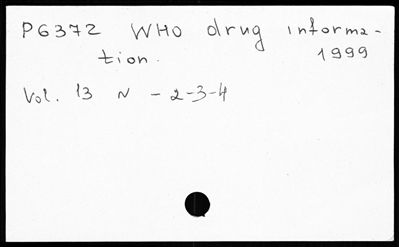 P6372 WHO drug informa-
tion. 1999
Vol. 13 N - 2-3-4